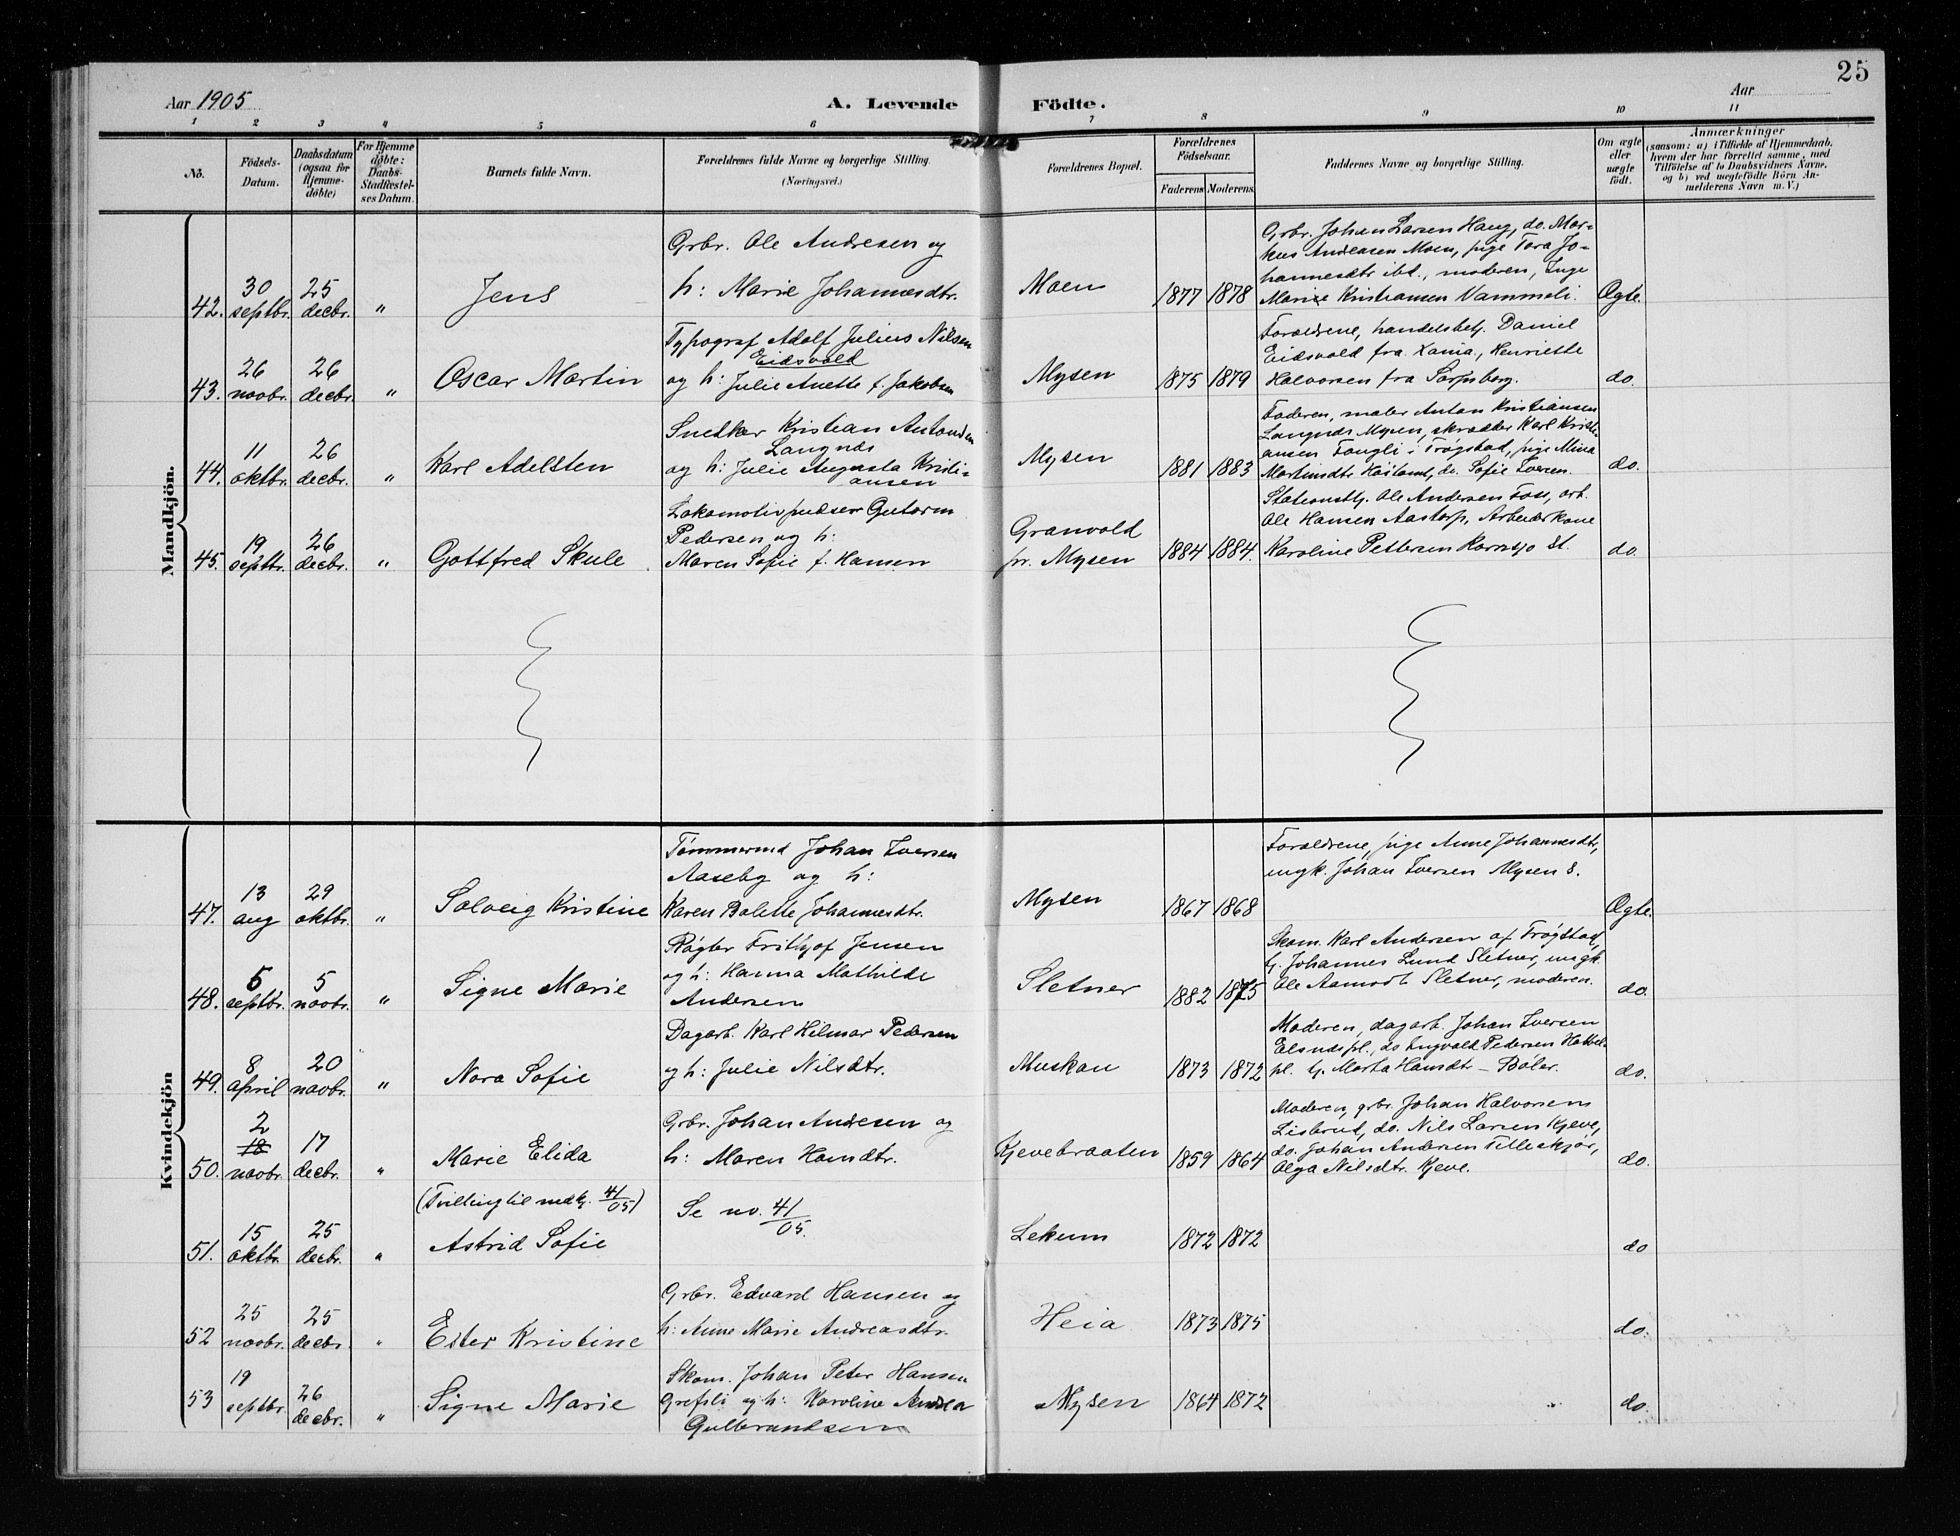 25
Aar 1905 A. Levende Födte. Aar
1 2 3 4 5 6 7 8 9 10 11
No.
Födsels-
Datum.
Daabsdatum
(ogsaa for
Hjemme-
döbte)
For Hjemme
döbte:
Daabs-
Stadfæstel-
ses Datum.
Barnets fulde Navn.
Forældrenes fulde Navne og borgerlige Stilling.
(Næringsvei.)
Forældrenes Bopæl.
Forældrenes
Födselsaar.
Faderens Moderens
Faddernes Navne og borgerlige Stilling.
Om ægte
eller
uægte
födt.
Anmærkninger
(saasom: a) i Tilfælde af Hjemmedaab,
hvem der har forrettet samme, med
Tilföielse af to Daabsvidners Navne,
og b) ved uægtefödte Börn An-
melderens Navn m. V.)
Mandkjön.
42. 30 septbr. 25 decbr. " Jens
Grbr. Ole Andresen og
h: Marie Johannesdtr.
Moen 1877 1878
Grbr. Johan Larsen Haug, do. Mar-
kus Andersen Moen, pige Tora Jo-
hannesdtr ibd., moderen, Inge
Marie Kristiansen Vammeli.
Ægte.
43. 26 novbr. 26 decbr. " Oscar Martin
Typograf Adolf Julius Nilsen
Eidsvold
og h: Julie Anette f. Jakobsen
Mysen 1875 1879
Forældrene, handelsbetj. Daniel
Eidsvold fra Xania, Henriette
Halvorsen fra Sarpsborg.
do.
44. 11 oktbr. 26 decbr. " Karl Adelsten
Snedker Kristian Antonsen
Langnæs
og h: Julie Augusta Kristi-
ansen
Mysen 1881 1883
Faderen, maler Anton Kristiansen
Langnæs Mysen, skrædder Karl Kristi-
ansen Fangli i Trøgstad, pige Mina
Martinsdtr, do. Sofie Iversen.
do.
45. 19 septbr. 26 decbr. " Gottfred Skule.
Lokomotivpudser Gutorm
Pedersen og h:
Maren Sofie f. Hansen
Granvold
pr. Mysen 1884 1884.
Stationsbtj. Ole Andersen Foss, arb.
Ole Hansen Aastorp, Arbeiderkone
Karoline Pettersen Kornsjø St.
do.
Kvindekjön
47. 13 aug 29 oktbr. " Solveig Kristine
Tømmermd Johan Iversen
Aaseby og h:
Karen Bolette Johannesdtr.
Mysen 1867 1868
Forældrene, pige Anne Johannesdtr,
ungk. Johan Iversen Mysen S.
Ægte.
48. 5 septbr. 5 novbr. " Signe Marie
Røgter Frithjof Jensen
og h: Hanna Mathilde
Andersen
Sletner 1882 1875
Skom. Karl Andersen af Trøgstad,
tj. Johannes Lund Sletner, ungk.
Ole Aamodt Sletner, moderen.
do.
49. 8 april 20 novbr. " Nora Sofie
Dagarb. Karl Hilmar Pedersen
og h: Julie Nilsdtr.
Muskau 1873 1872
Moderen, dagarb. Johan Iversen
Elsnespl., do Ingvald Pedersen
pl. tj. Marta Hansdt – Bøler.
do.
50. 2 18 novbr. 17 decbr. " Marie Elida
Grbr. Johan Andresen og
h: Maren Hansdtr.
Kjevebraaten 1859 1864
Moderen, grbr. Johan Halvorsen
Lisbrud, do. Nils Larsen Kjeve,
do. Johan Andersen Tilleskjør,
Olga Nilsdtr. Kjeve.
do.
51. 15 oktbr. 25 decbr. "
(Tvilling til mdkj. 41/05)
Astrid Sofie
Se no. 41/05.
Lekum 1872 1872 do
52 25 novbr. 25 decbr. " Ester Kristine
Grbr. Edvard Hansen og
h: Anne Marie Andreasdtr.
Heia 1873 1875 do.
53 19 septbr. 26 decbr. " Signe Marie
Skom. Johan Peter Hansen
Grefsli og h: Karoline Andrea
Gulbrandsen
Mysen 1864 1872 do.